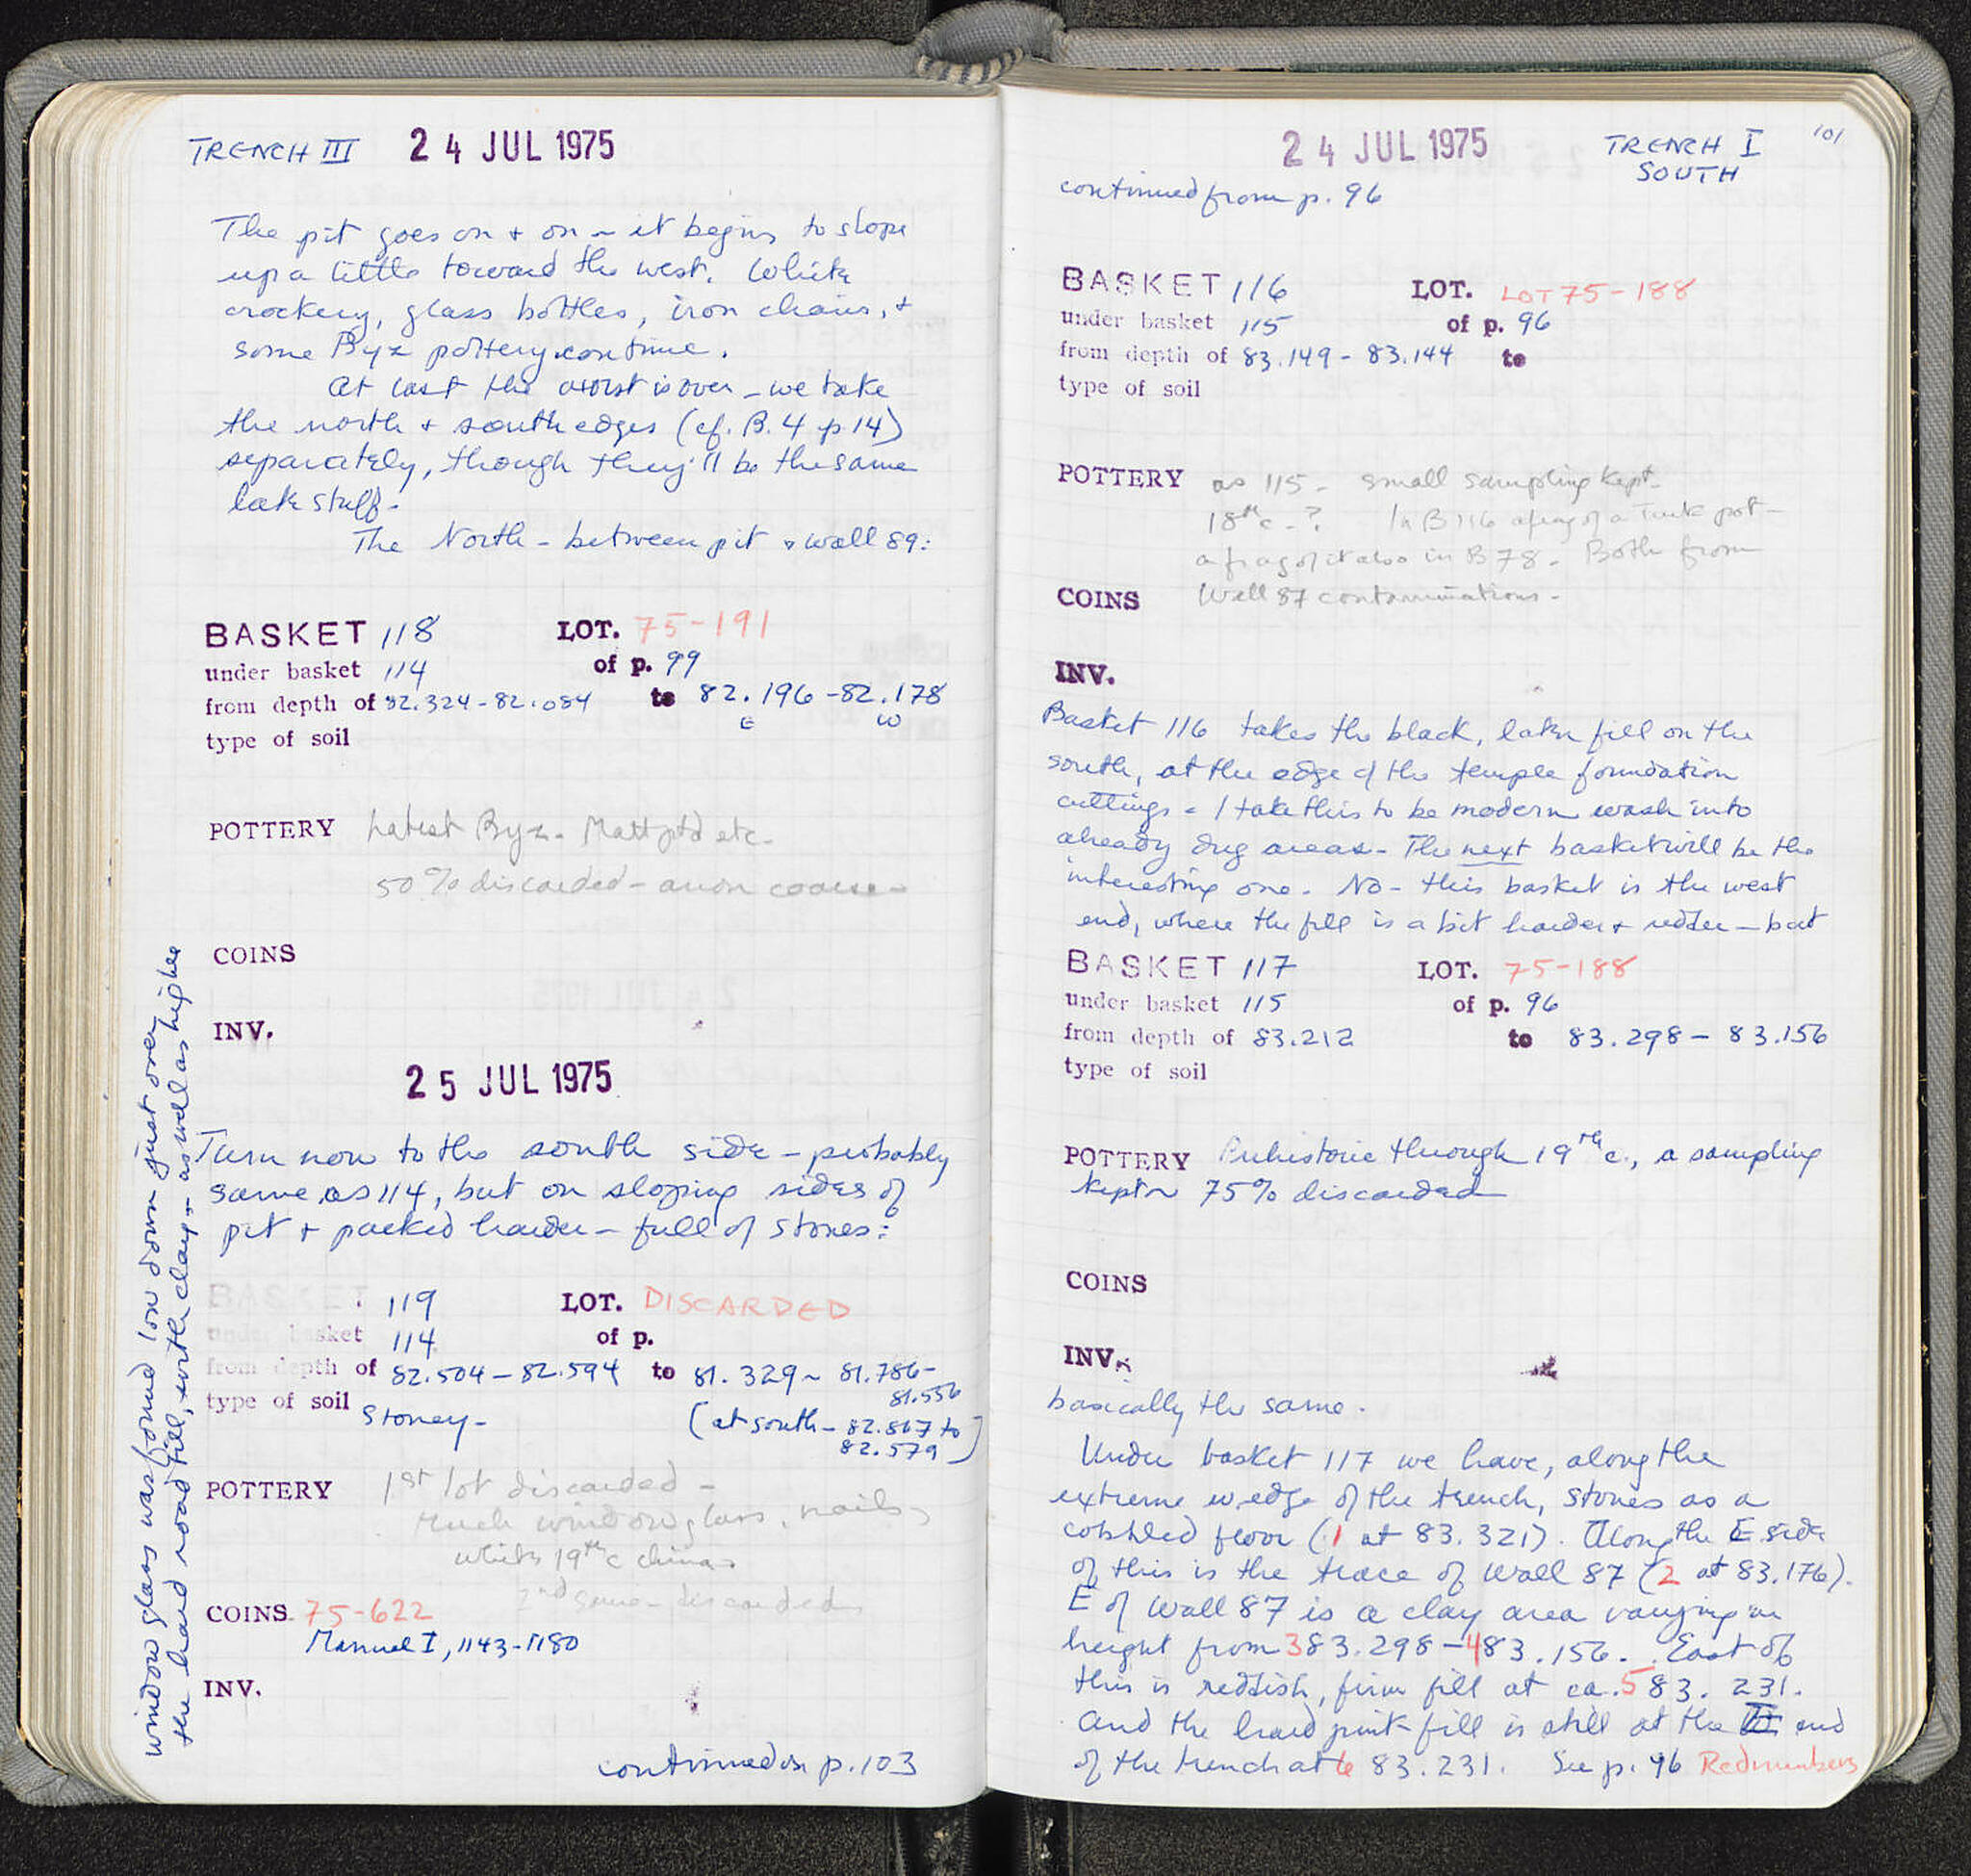 TRENCH III 24 JUL 1975
The pit goes on + on ~ it begins to slope
up a little toward the west. White
crockery, glass bottles, iron chains, +
some Byz pottery continue.
At last the worst is over - we take
the north + south edges (cf. B.4 p 14)
separately, though they'll be the same
late stuff-
The North - between pit + wall 89:
BASKET 118 LOT. 75-191
under basket 114 of p. 99
from depth of 82.324-82.084 to 82.196 -82.178
E W
type of soil
POTTERY Latest Byz. Matt ptd etc-
50% discarded - coarse-
COINS
INV.
25 JUL 1975
Turn now to the south side - probably
same as 114, but on sloping sides of
pit + packed harder - full of stones:
BASKET 119 LOT. DISCARDED
under basket 114 of p.
from depth of 82.504-82.594 to 81.329~ 81.786-
81.556
type of soil Stoney- (at south - 82.867 to
82.579)
POTTERY 1st lot discarded -
Much window glass, nails,
white 19th c china
2nd same - discarded
COINS. 75-622
Manuel I, 1143-1180
INV.
continued on p. 103
window glass was found low down just over
the hard road fill, + in the clay - as well as higher
24 JUL 1975 TRENCH I 101
SOUTH
continued from p. 96
BASKET 116 LOT. LOT 75-188
under basket 115 of p. 96
from depth of 83.149 - 83.144 to
type of soil
POTTERY as 115 - small sampling kept-
18th c - ? In B 116 a frag of a Turk pot -
a frag of it also in B 78. Both from
COINS Well 87 contaminations -
INV.
Basket 116 takes the black, later fill on the
south, at the edge of the temple foundation
cuttings - I take this to be modern wash into
already dug areas - The next basket will be the
interesting one - No - this basket is the west
end, where the fill is a bit harder + redder - but
BASKET 117 LOT. 75-188
under basket 115 of p. 96
from depth of 83.212 to 83.298 - 83.156
type of soil
POTTERY Prehistoric through 19th c., a sampling
kept ~ 75% discarded
COINS
INV.
basically the same.
Under basket 117 we have, along the
extreme w. edge of the trench, stones as a
cobbled floor (1 at 83.321). Along the E side
of this is the trace of wall 87 (2 at 83.176).
E of wall 87 is a clay area varying in
height from 3 83.298 - 4 83.156. East of
this is reddish, firm fill at ca. 5 83.231.
and the hard pink fill is still at the end
of the trench at 6 83.231. See p. 96 Red numbers